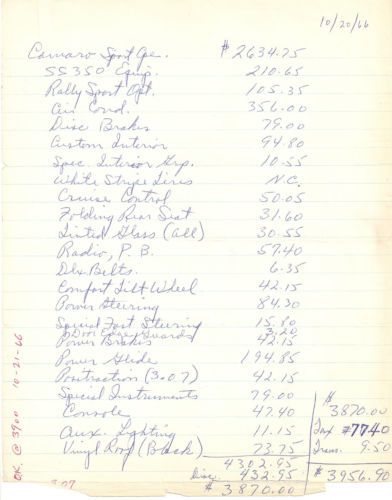 10/20/66
Camaro Sport Cpe. $ 2634.75
SS 350 Equip. 210.65
Rally Sport Opt. 105.35
Air Cond. 356.00
Disc Brakes 79.00
Custom Interior 94.80
Spec. Interior Grp. 10.55
White Stripe Tires N.C.
Cruise Control 50.05
Folding Rear Seat 31.60
Tinted Glass (all) 30.55
Radio, P.B. 57.40
Dlx Belts. 6.35
Comfort Tilt Wheel 42.15
Power Steering 84.30
Special Fast Steering 15.80
Door Edge Guards 3.20
Power Brakes 42.15
Power Glide 194.85
Positraction (3.07) 42.15
Special Instruments 79.00
Console 47.40
Aux. Lighting 11.15
Vinyl Roof (Black) 73.75
4302.95
Disc. 432.95
$ 3870.00
$ 3870.00
Tax 77.40
Trans. 9.50
$ 3956.90
OK. @ 3900 10-21-66
3.07